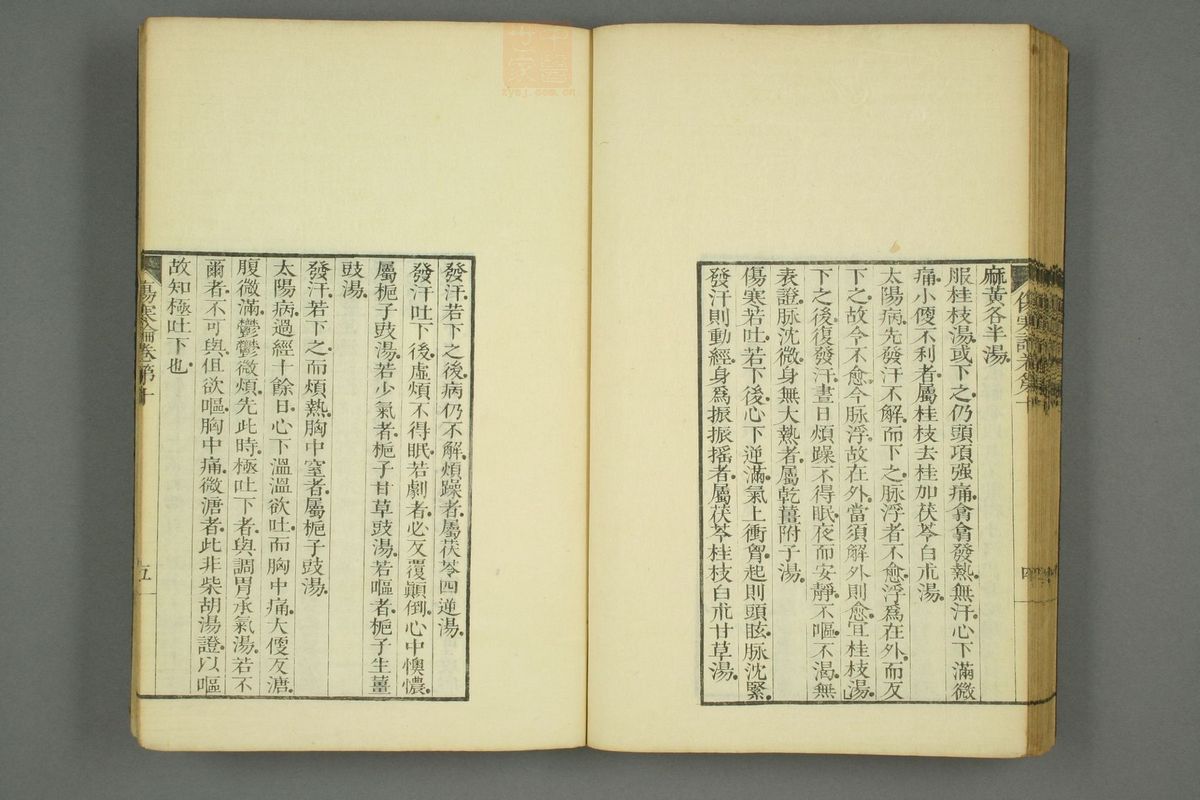 麻黃各半湯
服桂枝湯或下之仍頭項强痛翕翕發熱無汗心下滿微
痛小便不利者屬桂枝去桂加茯苓白朮湯
太陽病先發汗不解而下之脉浮者不愈浮爲在外而反
下之故令不愈今脉浮故在外當須解外則愈宜桂枝湯
下之後復發汗晝日煩躁不得眠夜而安靜不嘔不渴無
表證脉沈微身無大熱者屬乾薑附子湯
傷寒若吐若下後心下逆滿氣上衝胷起則頭眩脉沈緊
發汗則動經身爲振振摇者屬茯苓桂枝白朮甘草湯
四
發汗若下之後病仍不解煩躁者屬茯苓四逆湯
發汗吐下後虛煩不得眠若劇者必反覆顚倒心中懊憹
屬梔子豉湯若少氣者梔子甘草豉湯若嘔者梔子生薑
豉湯
發汗若下之而煩熱胸中窒者屬梔子豉湯
太陽病過經十餘日心下溫溫欲吐而胸中痛大便反溏
腹微滿鬱鬱微煩先此時極吐下者與調胃承氣湯若不
爾者不可與但欲嘔胸中痛微溏者此非柴胡湯證以嘔
故知極吐下也
傷寒論卷第十
五
中醫世家
zysj.com.cn